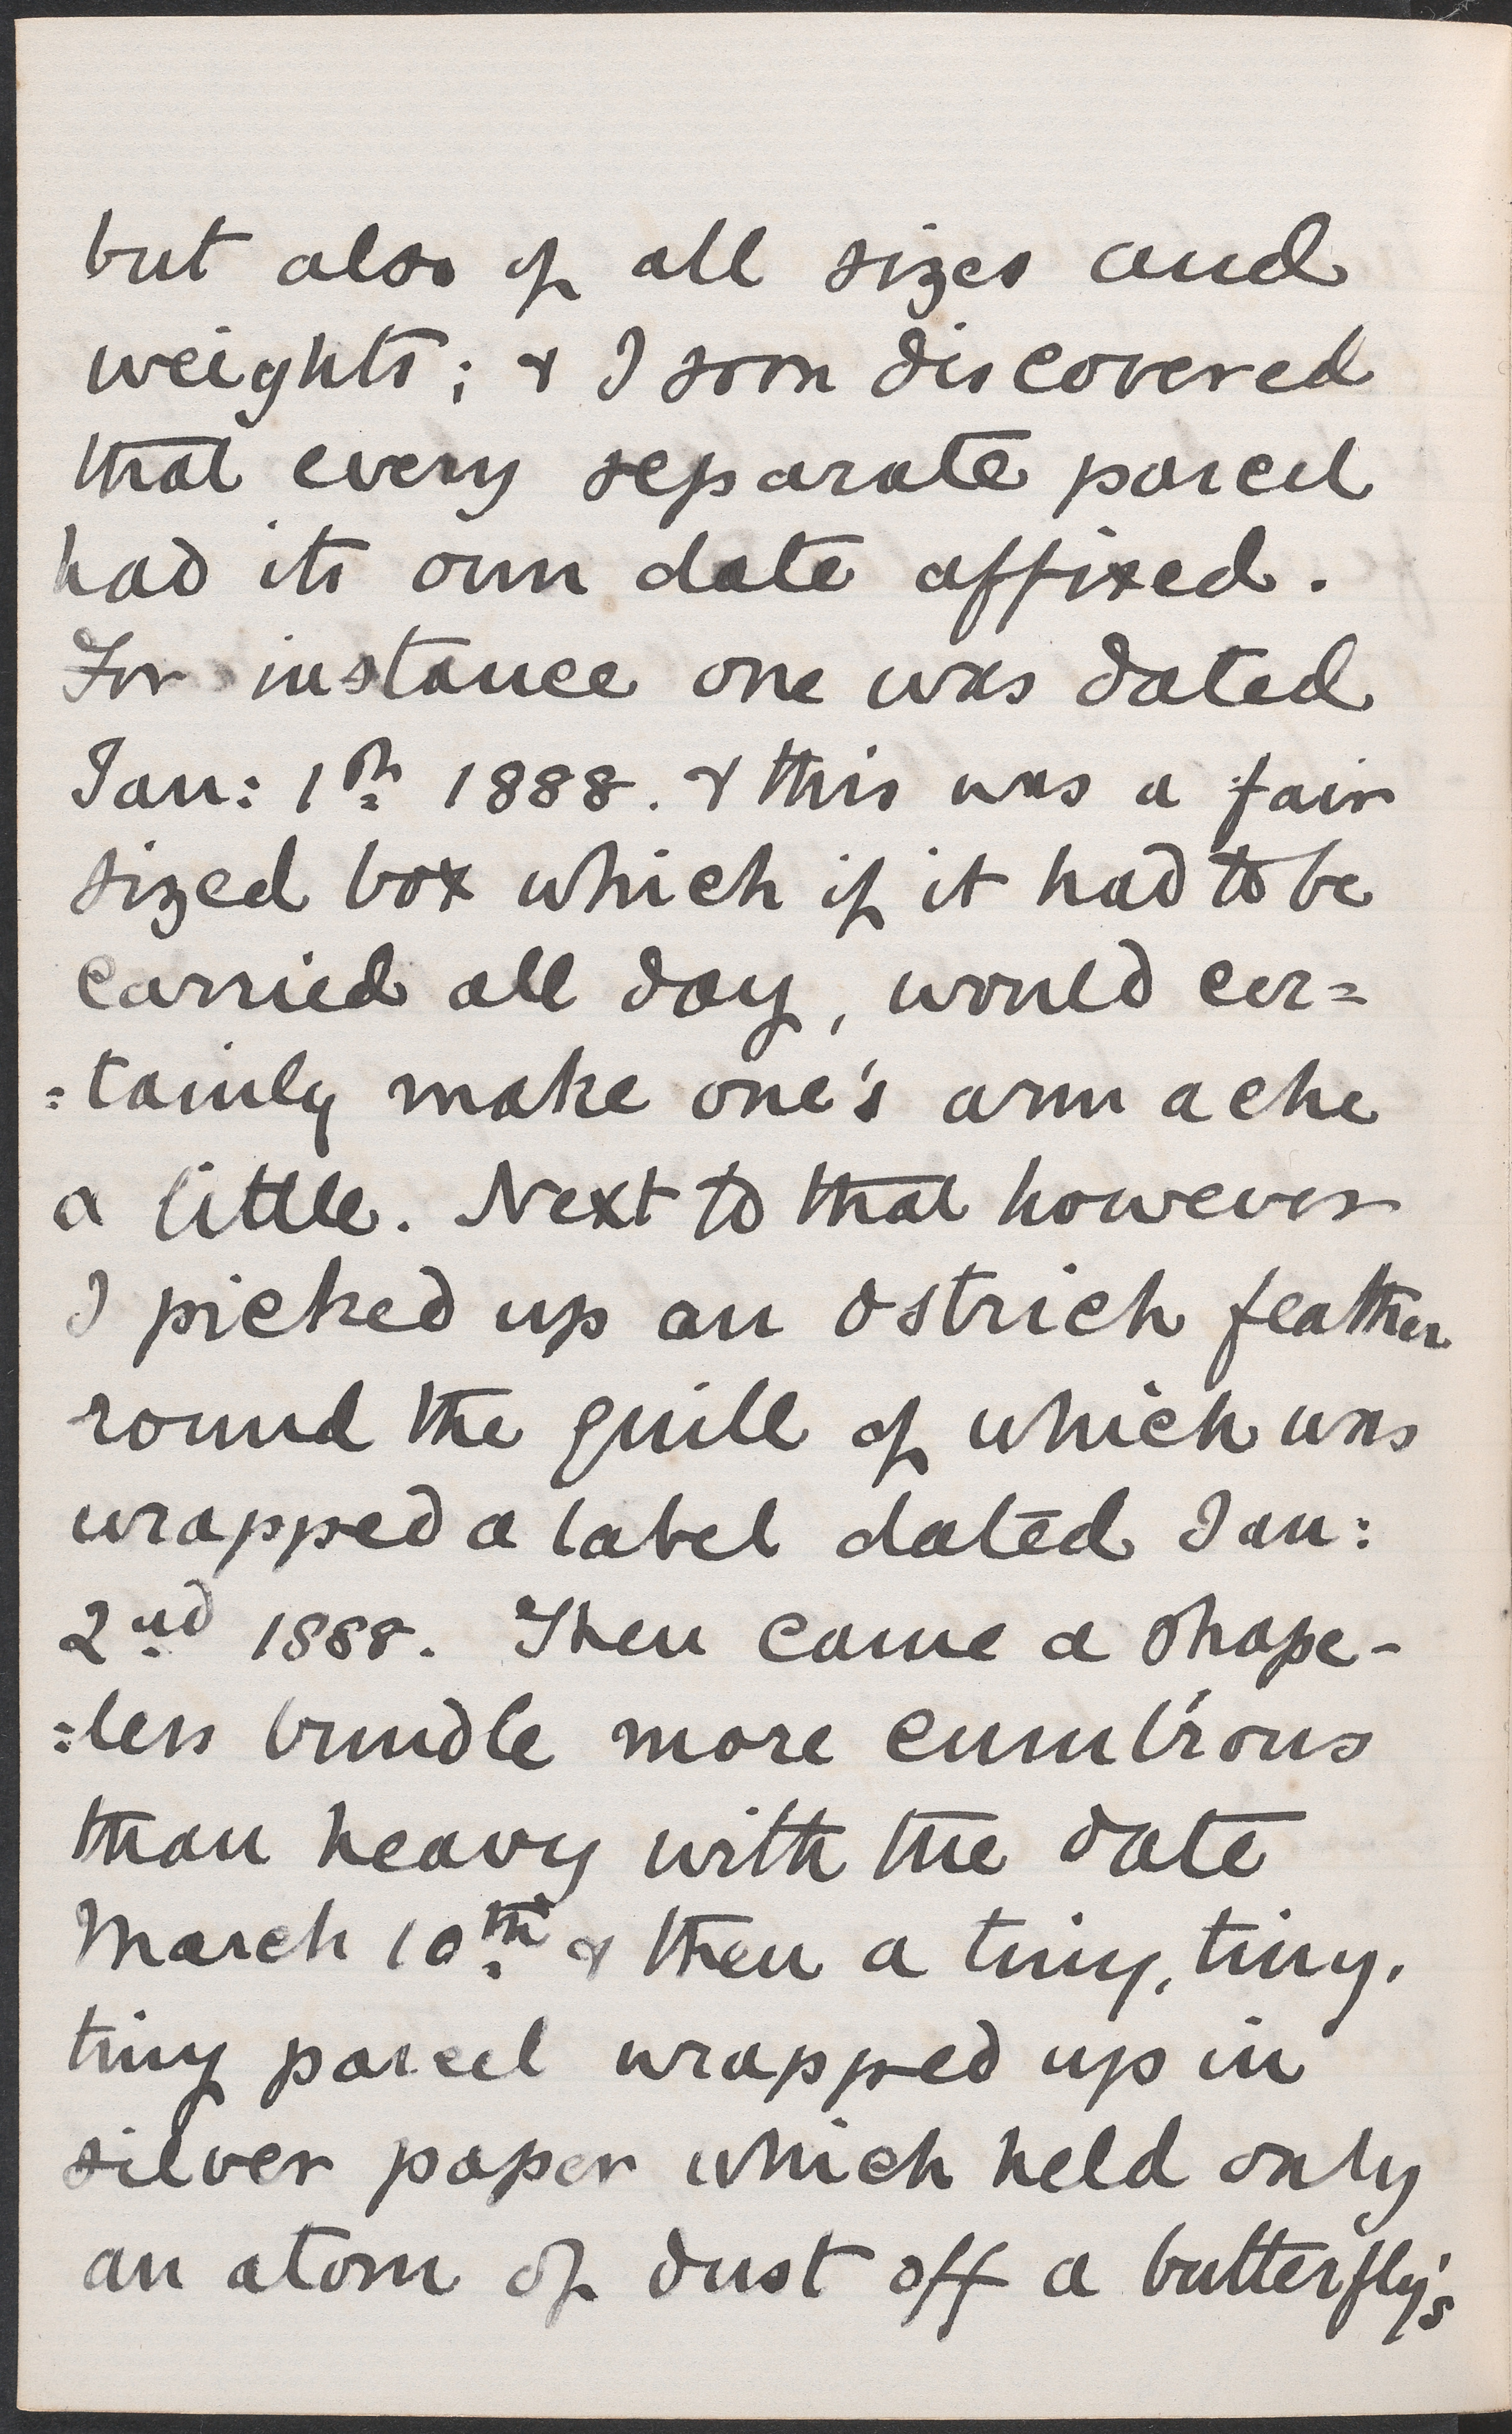 but also of all sizes and
weights; & I soon discovered
that every separate parcel
had its own date affixed.
For instance one was dated
Jan: 1th 1888. & this was a fair
sized box which if it had to be
carried all day, would cer=
:tainly make one's arm ache
a little. Next to that however
I picked up an ostrich feather
round the quill of which was
wrapped a label dated Jan:
2nd 1888. Then came a shape-
:less bundle more cumb'rous
than heavy with the date
March 10th & then a tiny, tiny,
tiny parcel wrapped up in
silver paper which held only
an atom of dust off a butterfly's